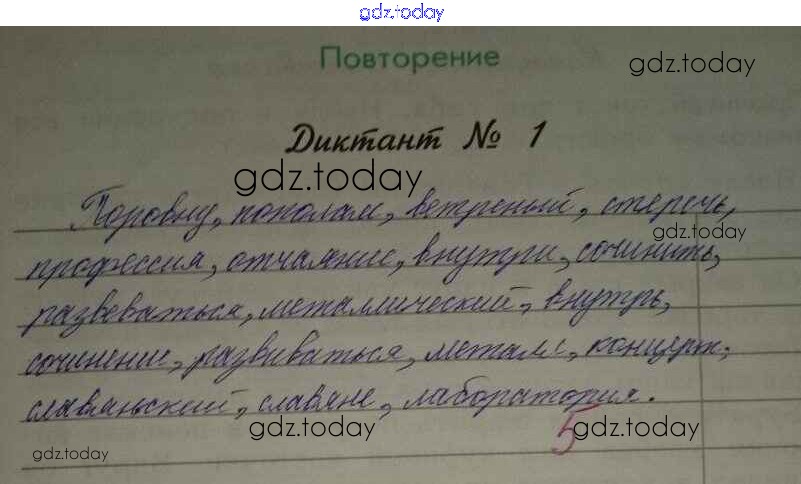 gdz.today
Повторение
gdz.today
Диктант № 1
gdz.today
Поровну, пополам, ветреный, стеречь,
gdz.today
профессия, отчаяние, внутри, сочинить,
развеваться, металлический, внутрь,
сочинение, развиваться, металл, концерт,
славянский, славяне, лаборатория.
gdz.today
5
gdz.today
gdz.today